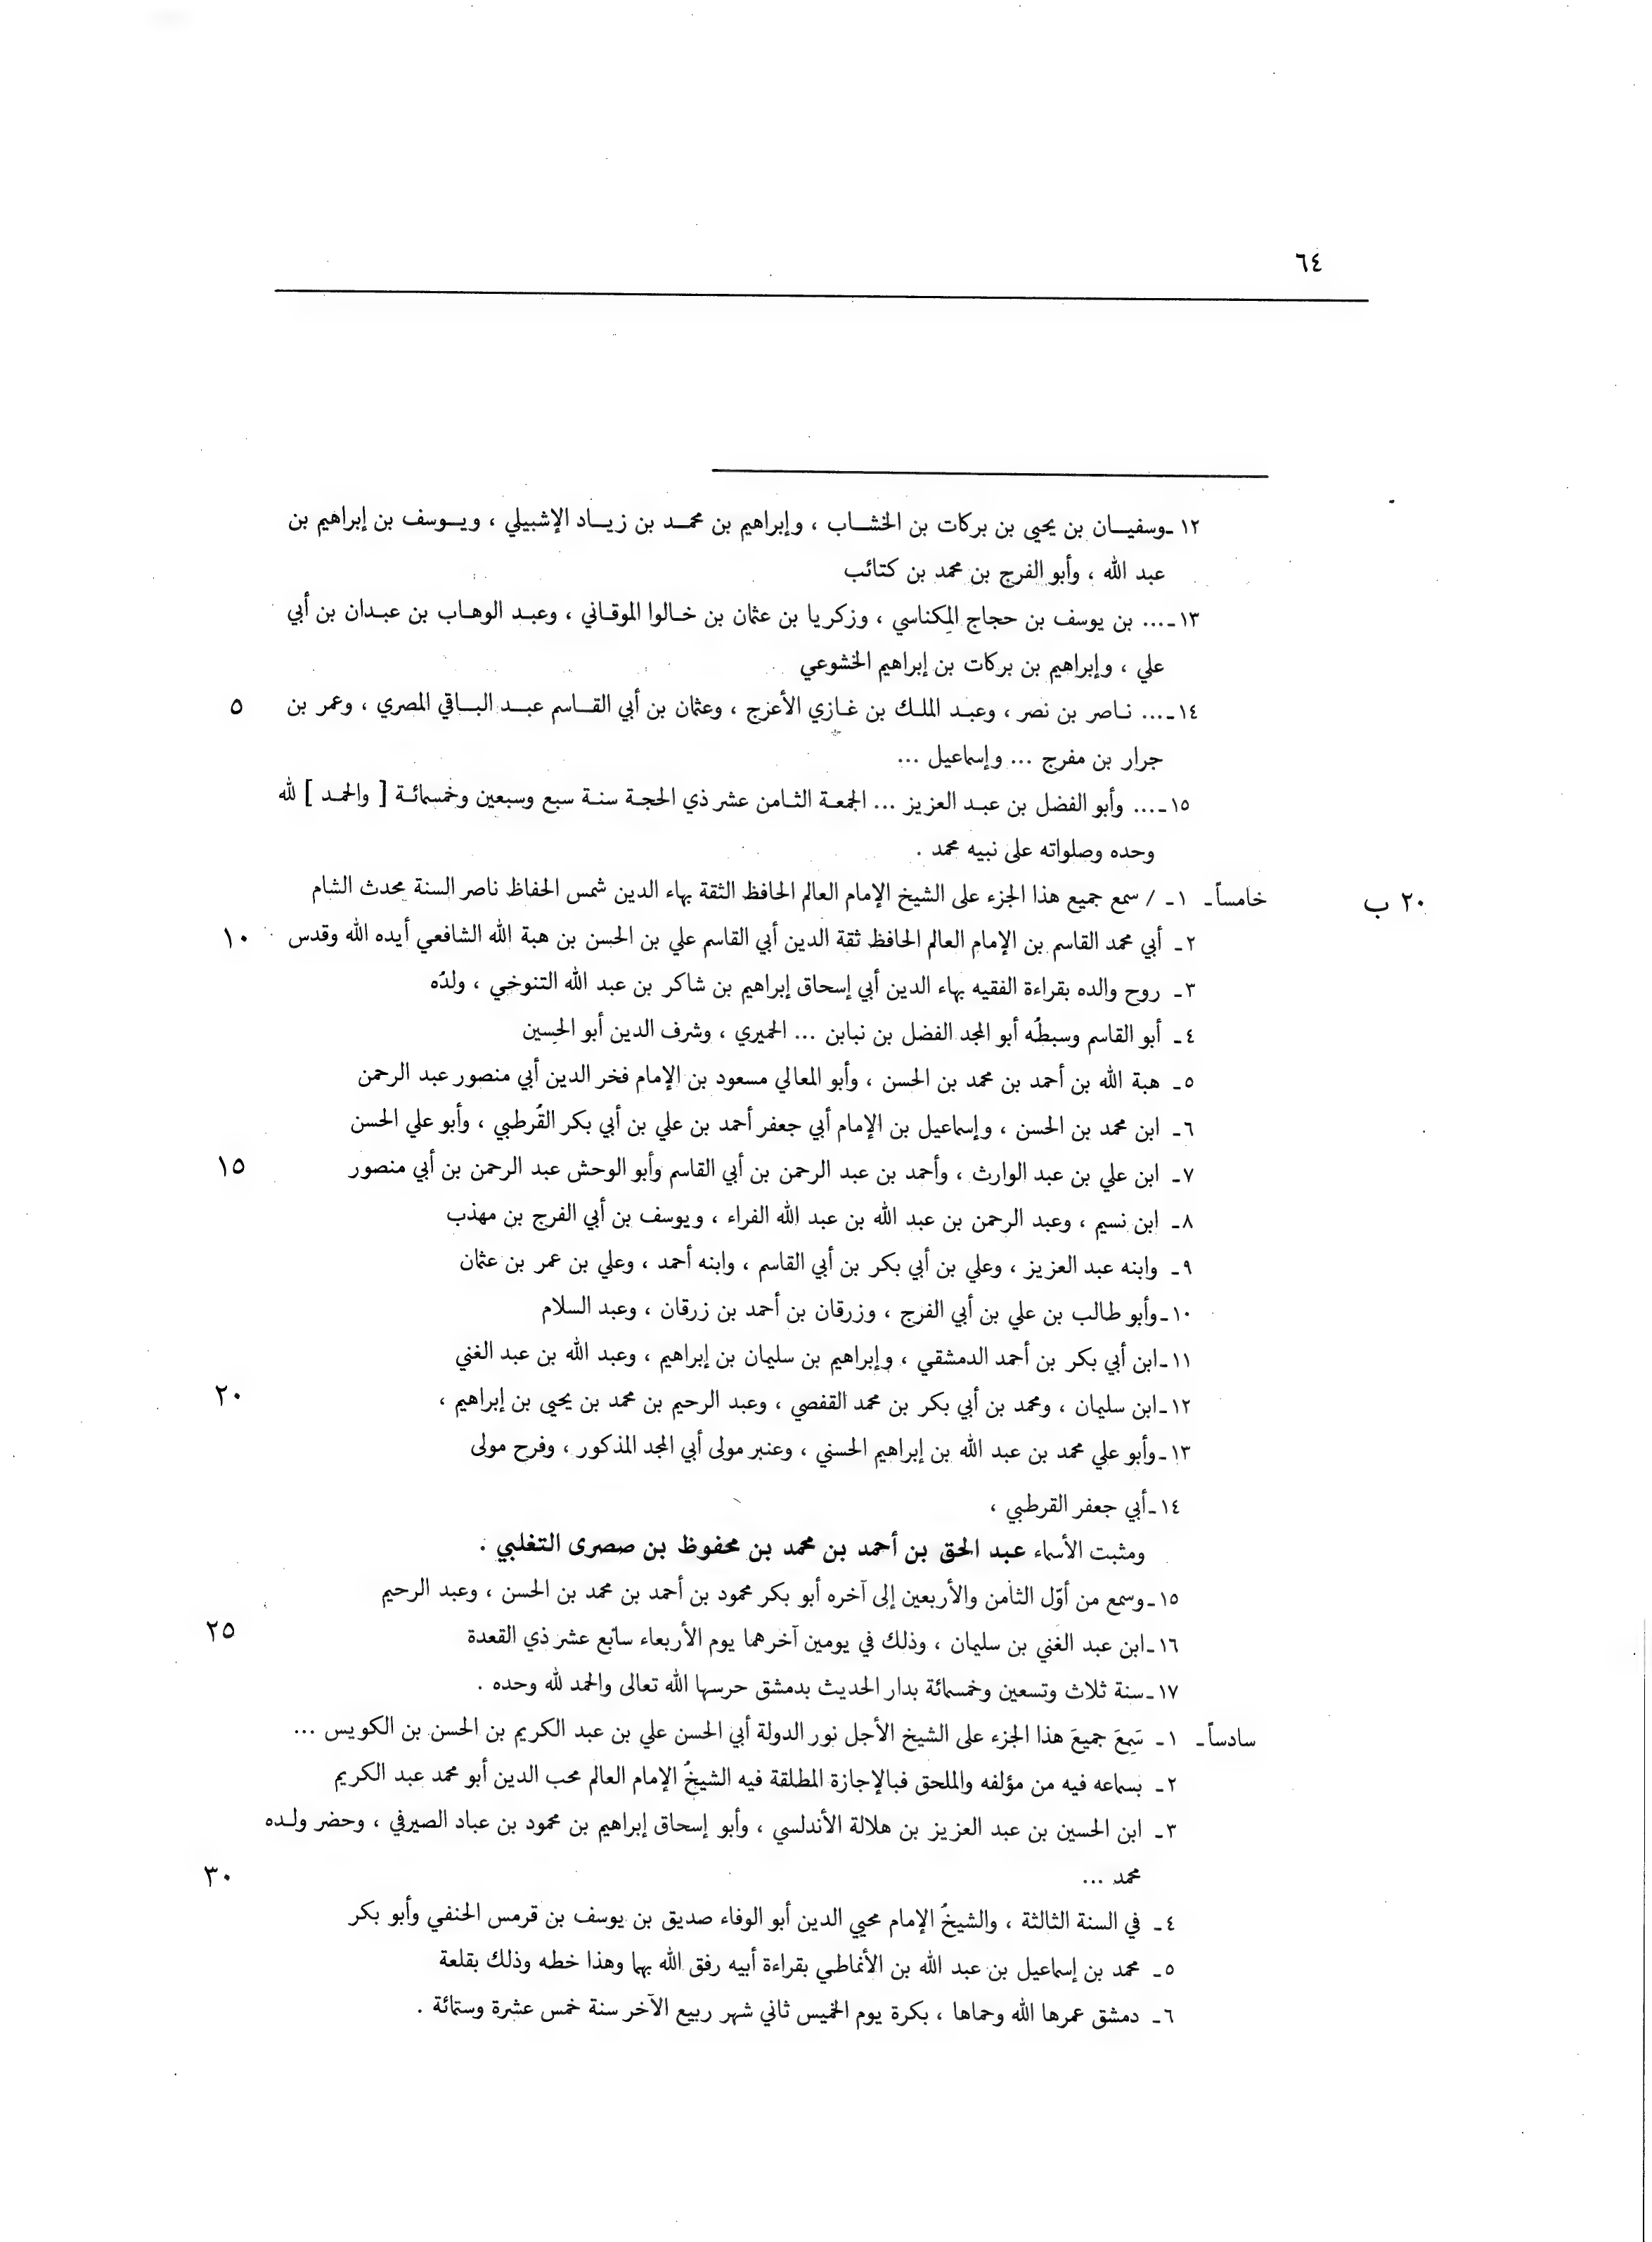 ٦٤
١٢ ـ وسفيـان بن يحيى بن بركات بن الخشـاب ، وإبراهيم بن محمـد بن زيـاد الإشبيلي ، ويـوسف بن إبراهيم بن
عبد الله ، وأبو الفرج بن محمد بن كتائب
١٣ ـ ... بن يوسف بن حجاج المِكناسي ، وزكريا بن عثمان بن خـالوا الموقـاني ، وعبـد الوهـاب بن عبـدان بن أبي
علي ، وإبراهيم بن بركات بن إبراهيم الخشوعي
١٤ ـ ... نـاصر بن نصر ، وعبـد الملـك بن غـازي الأعرج ، وعثمان بن أبي القـاسم عبـد البـاقي المصري ، وعمر بن ٥
جرار بن مفرج ... وإسماعيل ...
١٥ ـ ... وأبو الفضل بن عبـد العزيز ... الجمعـة الثـامن عشر ذي الحجـة سنـة سبع وسبعين وخمسمائـة [ والحمـد ] لله
وحده وصلواته على نبيه محمد .
٢٠ ب خامساً ـ ١ ـ / سمع جميع هذا الجزء على الشيخ الإمام العالم الحافظ الثقة بهاء الدين شمس الحفاظ ناصر السنة محدث الشام
٢ ـ أبي محمد القاسم بن الإمام العالم الحافظ ثقة الدين أبي القاسم علي بن الحسن بن هبة الله الشافعي أيده الله وقدس ١٠
٣ ـ روح والده بقراءة الفقيه بهاء الدين أبي إسحاق إبراهيم بن شاكر بن عبد الله التنوخي ، ولدُه
٤ ـ أبو القاسم وسبطُه أبو المجد الفضل بن نبابن ... الحميري ، وشرف الدين أبو الحسين
٥ ـ هبة الله بن أحمد بن محمد بن الحسن ، وأبو المعالي مسعود بن الإمام فخر الدين أبي منصور عبد الرحمن
٦ ـ ابن محمد بن الحسن ، وإسماعيل بن الإمام أبي جعفر أحمد بن علي بن أبي بكر القُرطبي ، وأبو علي الحسن
٧ ـ ابن علي بن عبد الوارث ، وأحمد بن عبد الرحمن بن أبي القاسم وأبو الوحش عبد الرحمن بن أبي منصور ١٥
٨ ـ ابن نسيم ، وعبد الرحمن بن عبد الله بن عبد الله الفراء ، ويوسف بن أبي الفرج بن مهذب
٩ ـ وابنه عبد العزيز ، وعلي بن أبي بكر بن أبي القاسم ، وابنه أحمد ، وعلي بن عمر بن عثمان
١٠ ـ وأبو طالب بن علي بن أبي الفرج ، وزرقان بن أحمد بن زرقان ، وعبد السلام
١١ ـ ابن أبي بكر بن أحمد الدمشقي ، وإبراهيم بن سليمان بن إبراهيم ، وعبد الله بن عبد الغني
١٢ ـ ابن سليمان ، ومحمد بن أبي بكر بن محمد القفصي ، وعبد الرحيم بن محمد بن يحيى بن إبراهيم ، ٢٠
١٣ ـ وأبو علي محمد بن عبد الله بن إبراهيم الحسني ، وعنبر مولى أبي المجد المذكور ، وفرح مولى
١٤ ـ أبي جعفر القرطبي ،
ومثبت الأسماء عبد الحق بن أحمد بن محمد بن محفوظ بن صصرى التغلبي .
١٥ ـ وسمع من أوّل الثامن والأربعين إلى آخره أبو بكر محمود بن أحمد بن محمد بن الحسن ، وعبد الرحيم
١٦ ـ ابن عبد الغني بن سليمان ، وذلك في يومين آخرهما يوم الأربعاء سابع عشر ذي القعدة ٢٥
١٧ ـ سنة ثلاث وتسعين وخمسمائة بدار الحديث بدمشق حرسها الله تعالى والحمد لله وحده .
سادساً ـ ١ ـ سَمِعَ جميعَ هذا الجزء على الشيخ الأجل نور الدولة أبي الحسن علي بن عبد الكريم بن الحسن بن الكويس ...
٢ ـ بسماعه فيه من مؤلفه والملحق فبالإجازة المطلقة فيه الشيخُ الإمام العالم محب الدين أبو محمد عبد الكريم
٣ ـ ابن الحسين بن عبد العزيز بن هلالة الأندلسي ، وأبو إسحاق إبراهيم بن محمود بن عباد الصيرفي ، وحضر ولـده
محمد ... ٣٠
٤ ـ في السنة الثالثة ، والشيخُ الإمام محيي الدين أبو الوفاء صديق بن يوسف بن قرمس الحنفي وأبو بكر
٥ ـ محمد بن إسماعيل بن عبد الله بن الأنماطي بقراءة أبيه رفق الله بهما وهذا خطه وذلك بقلعة
٦ ـ دمشق عمرها الله وحماها ، بكرة يوم الخميس ثاني شهر ربيع الآخر سنة خمس عشرة وستمائة .